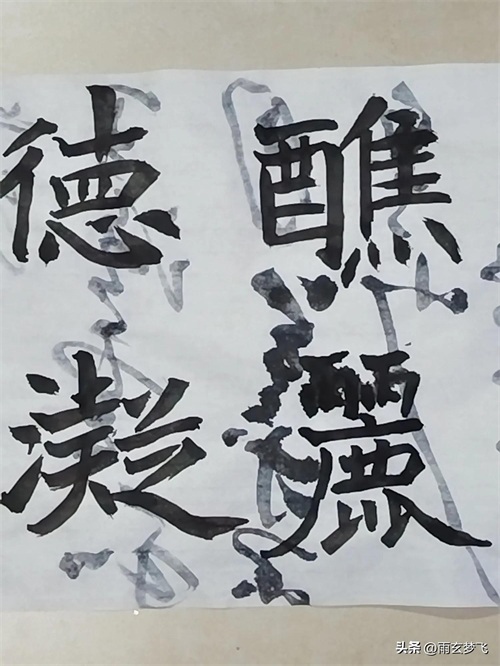 醮麗
德凝
头条 @雨玄梦飞